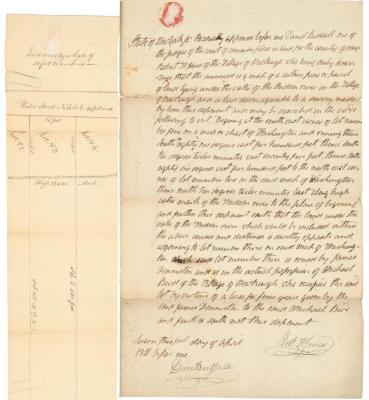 Land survey a scale of
50 feet to an inch
Water Street N 10° E
50 feet
Lot No 2
Lot No 3
Lot No 4
High Water Mark
State of New York ss Personally appeared before me Daniel Birdsall one of
the judges of the court of common pleas in and for the county of orange
Robert D Jones of the Village of Newburgh who being duly sworn
says that the annexed is a map of a certain piece or parcel
of land lying under the water of the Hudson river in the Village
of Newburgh and is laid down agreeable to a survey made
by him this deponent and may be described in the words
following to wit Begining at the south east corner of lot number
four on a map or chart of Washington and runing thence
South eighty one degrees east five hundred feet thence south
ten degrees twelve minutes west seventy five feet thence north
eighty one degrees west five hundred feet to the north east cor
ner of lot number two on the said map of Washington
thence north ten degrees twelve minutes East along high
water mark of the Hudson river to the place of begining
and further this deponent saith that the land under the
water of the Hudson river which would be inclosed within
the above courses and distances is directly opposite and
adjoining to lot number three on said map of Washing-
ton which said lot number three is owned by James
Denniston and is in the actual possession of Michael
Bird of the Village of Newburgh who occupies the said
lot by virtue of a lease for four years given by the
said James Denniston to the said Michael Bird
and further saith not this deponent
Sworn this first day of April
1811 before me
Dan Birdsall